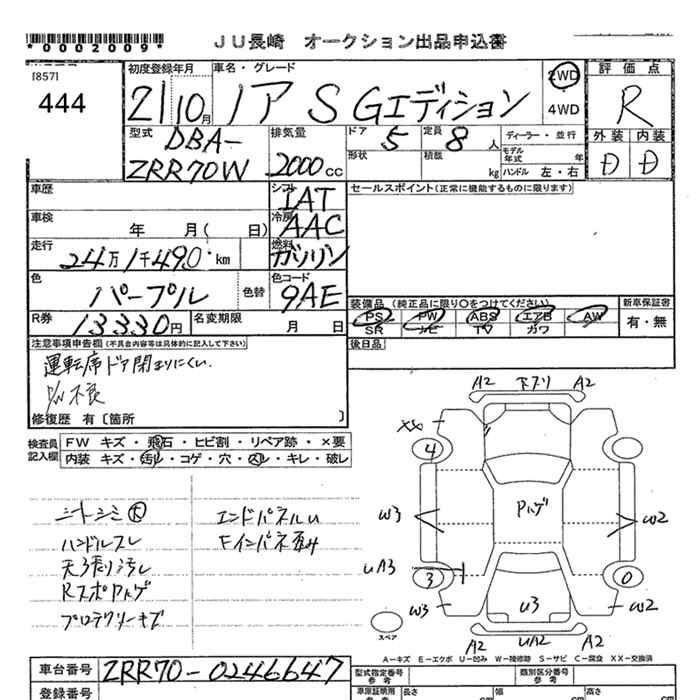 *0002009*
JU長崎 オークション出品申込書
[857]
444
初度登録年月 車名・グレード 評価点
21 10月 ノア S Gエディション 2WD 4WD R
型式 排気量 ドア 定員 ディーラー・並行 外装 内装
DBA-ZRR70W 2000cc 5 8人 Đ Đ
形状 積載 kg モデル年式 年 ハンドル 左・右
車歴 シフト IAT セールスポイント(正常に機能するものに限ります)
車検 年 月( 日) 冷房 AAC
走行 24万1千490km 燃料 ガソリン
色 パープル 色替 色コード 9AE
装備品(純正品に限り○をつけてください) 新車保証書
R券 13330円 名変期限 月 日 PS PW ABS エアB AW 有・無
SR ナビ TV カワ
注意事項申告欄(不具合内容等は具体的に記入して下さい) 後日品
運転席ドア閉まりにくい.
P/W不良
修復歴 有〔箇所 〕
検査員記入欄 FW キズ・飛石・ヒビ割・リペア跡・×要
内装 キズ・汚レ・コゲ・穴・スレ・キレ・破レ
シートシミ大 エンドパネルU
ハンドルスレ Fインパネ歪み
天張り汚レ
RスポPハゲ
プロテクターキズ
A2 下ブリ A2
XX
4
W3 Pハゲ W2
UA3
3 0
W3 U3 W2
スペア
A2 UA2 A2
A-キズ E-エクボ U-凹み W-補修跡 S-サビ C-腐食 XX-交換済
車台番号 ZRR70-0246647 型式指定番号 参考 類別区分番号 参考
登録番号 車庫証明用 参考 長さ 幅 高さ